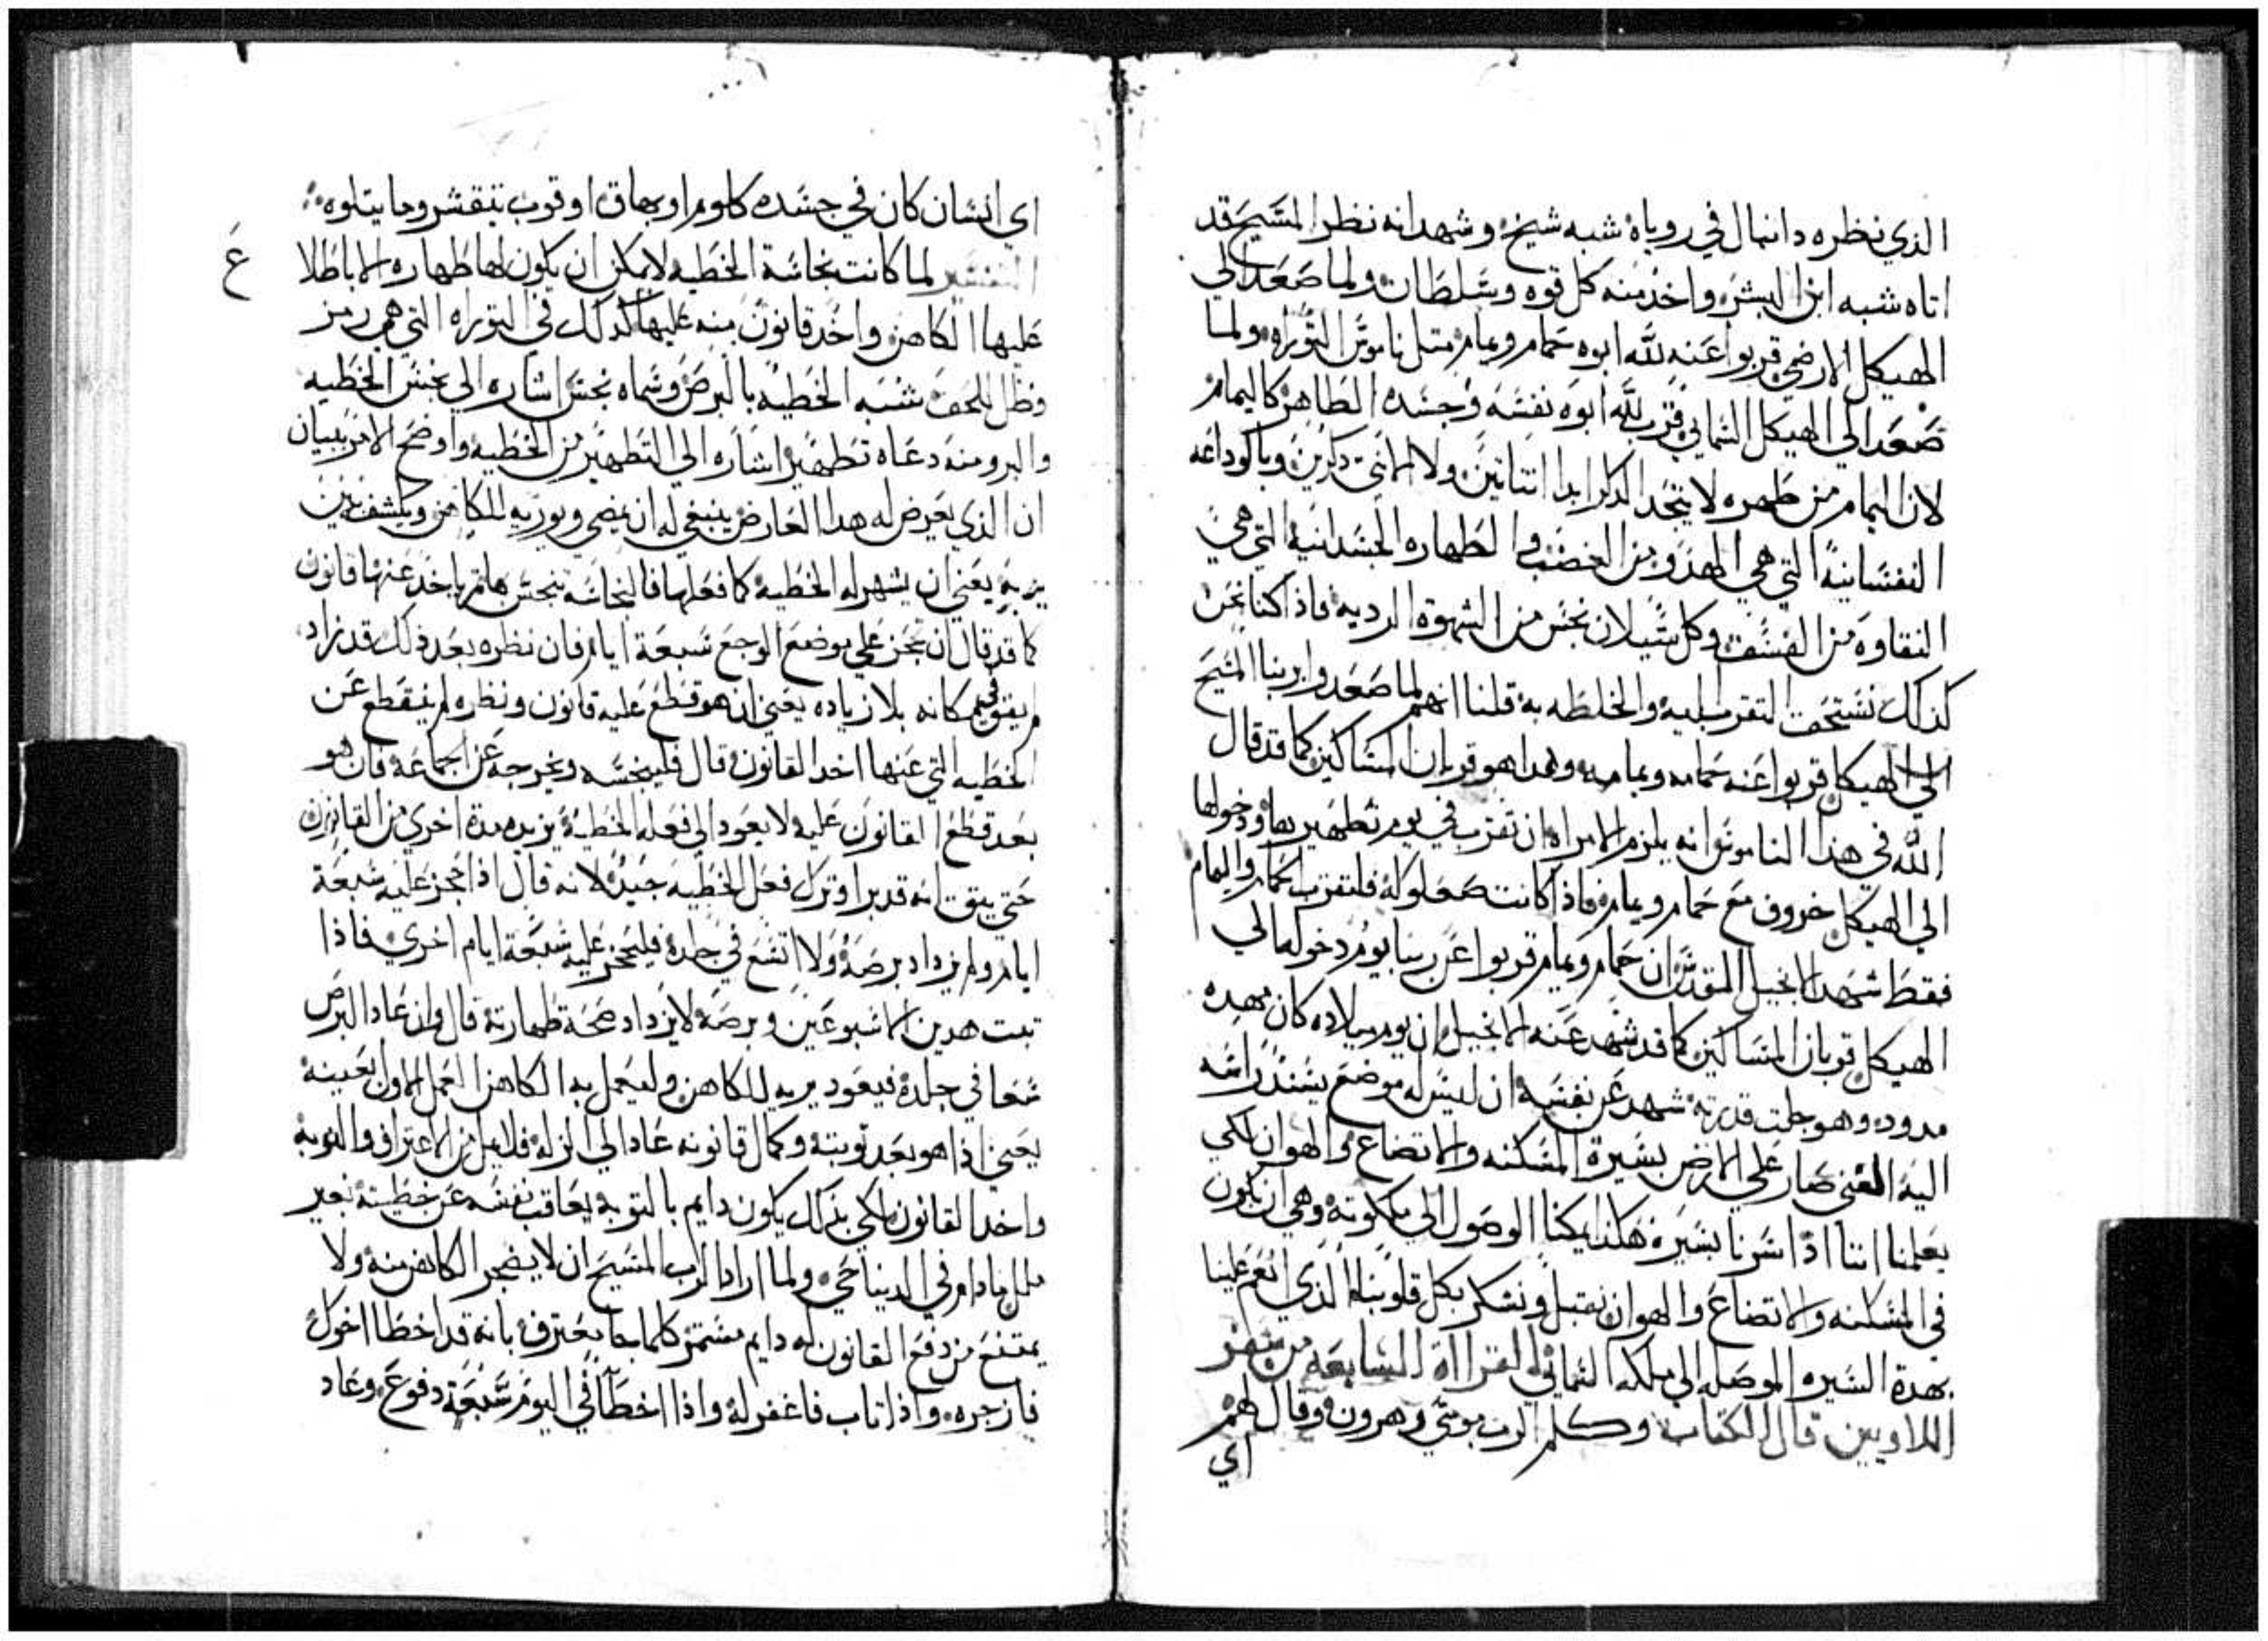 الذي نظره دانيال في روياه شبه شيخ وشهد انه نظر المسيح قد
اتاه شبه ابن البشر واخذ منه كل قوه وسلطان ولما صعد الي
الهيكل الارضي قربوا عنه لله ابوه حمام ويمام متل ناموس التوراه ولما
صعد الي الهيكل السماي قرب لله ابوه نفسه وجسده الطاهر كاليمام
لان اليمام من طهره لا يتخد الدكر ابدا انتاتين ولا الانتي دكرين وباكوداعه
النفسانية التي هي الهدو من الغضب والطهاره الجسدانية التي هي
النقاوه من الفسق وكل سيلان نجس من الشهوة الرديه فاذا كنا نحن
كذلك نستحق التقرب اليه والخلطه به قلنا انهم لما صعدوا بربنا المسيح
الي الهيكل قربوا عنه حمامه ويمامه وهدا هو قربان المساكين كما قد قال
الله في هذا الناموس انه يلزم الامراه ان تقرب في يوم تطهيرها ودخولها
الي الهيكل خروف مع حمام ويمام فاذا كانت صعلوكه فلتقرب حمام واليمام
فقط شهد الانجيل المقدس ان حمام ويمام قربوا عن ربنا يوم دخوله الي
الهيكل قربان المساكين كما قد شهد عنه الانجيل ان يوم ميلاده كان مهده
مدود وهو جلت قدرته شهد عن نفسه ان ليس له موضع يسند راسه
اليه الغني صار علي الارض بسيرة المسكنه والاتضاع والهوان لكي
يعلمنا اننا اذا سرنا بسيره هكذا يمكنا الوصول الي ملكوته وهي ان نكون
في المسكنه والاتضاع والهوان نقبل ونشكر بكل قلوبنا الذي انعم علينا
بهدة السيره الموصله الي ملكه السماي القرااة السابعه من سفر
اللاويين قال الكتاب وكلم الرب موسي وهرون وقال لهم
اي
اي انسان كان في جسده كلوم او بهاق او قوب يتقشر وما يتلوه
التفسير لما كانت نجاسة الخطيه لا يمكن ان يكون لها طهاره الا باطلا
ع
عليها الكاهن واخد قانون منه عليها كذلك في التوراه التي هي رمز
وظل للحق شبه الخطيه بالبرص وسماه نجس اشاره الي نجس الخطيه
والبرو منه دعاه تطهير اشاره الي التطهير من الخطيه واوضح الامر ببيان
ان الذي يعرض له هدا العارض ينبغي له ان يمضي ويوريه للكاهن ويكشف
يريه يعني ان يشهر له الخطيه كما فعلها فالنجاسه يتجسس بها تم ياخد عنها قانون
كما قد قال ان تحجز علي موضع الوجع سبعة ايام فان نظره بعد ذلك قد زاد
ام بقي مكانه بلا زياده يعني ان هو قطع عليه قانون ونظره لم ينقطع عن
الخطيه التي عنها اخد القانون قال فلينجسه ويخرجه عن الجماعه فان هو
بعد قطع القانون عليه لا يعود الي فعله الخطية يزيده مدة اخري من القانون
حتي يتق انه قد برا وترك فعل الخطيه جيد لانه قال اذا حجز عليه سبعة
ايام ولم يزداد برصه ولا اتسع في جلده فليحجز عليه سبعة ايام اخري فاذا
تمت هدين الاسبوعين وبرصه لا يزداد صحة طهارته قال وان عاد البرص
سعا في جلده فيعود يريه للكاهن وليعمل به الكاهن العمل الاول بعينه
يعني اذا هو بعد توبته وكمال قانونه عاد الي الزله فلا يمل من الاعتراف والتوبه
واخد القانون لكي بذلك يكون دايم بالتوبه يعاقب نفسه عن خطيته بغير
ملل مادام في الدنيا حي ولما اراد الرب المسيح ان لا يضجر الكاهن منه ولا
يمتنع من دفع القانون له دايم مستمر كلما جا يعترف بانه قد اخطا اخوك
فازجره واذا تاب فاغفر له واذا اخطا في اليوم سبعة دفوع وعاد